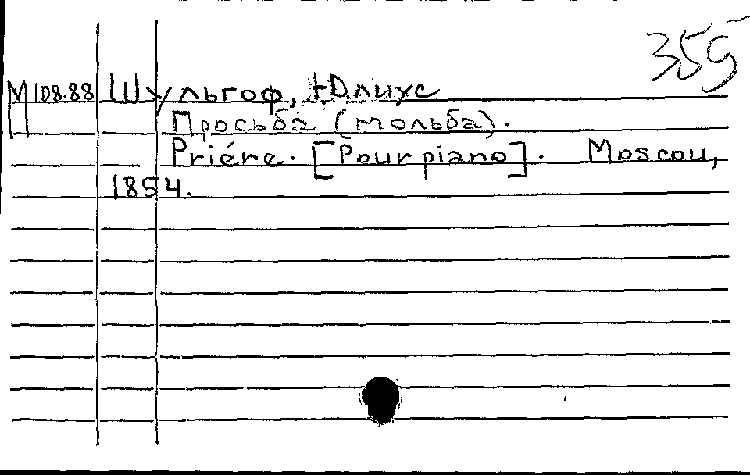 355
М 108.88 Шульгоф, Юлиус
Просьба (мольба).
Priére. [Pour piano]. Moscou,
1854.